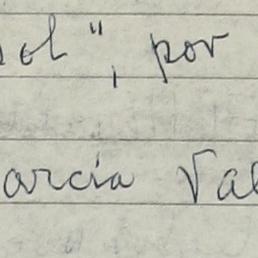 sol", por
arcía Val